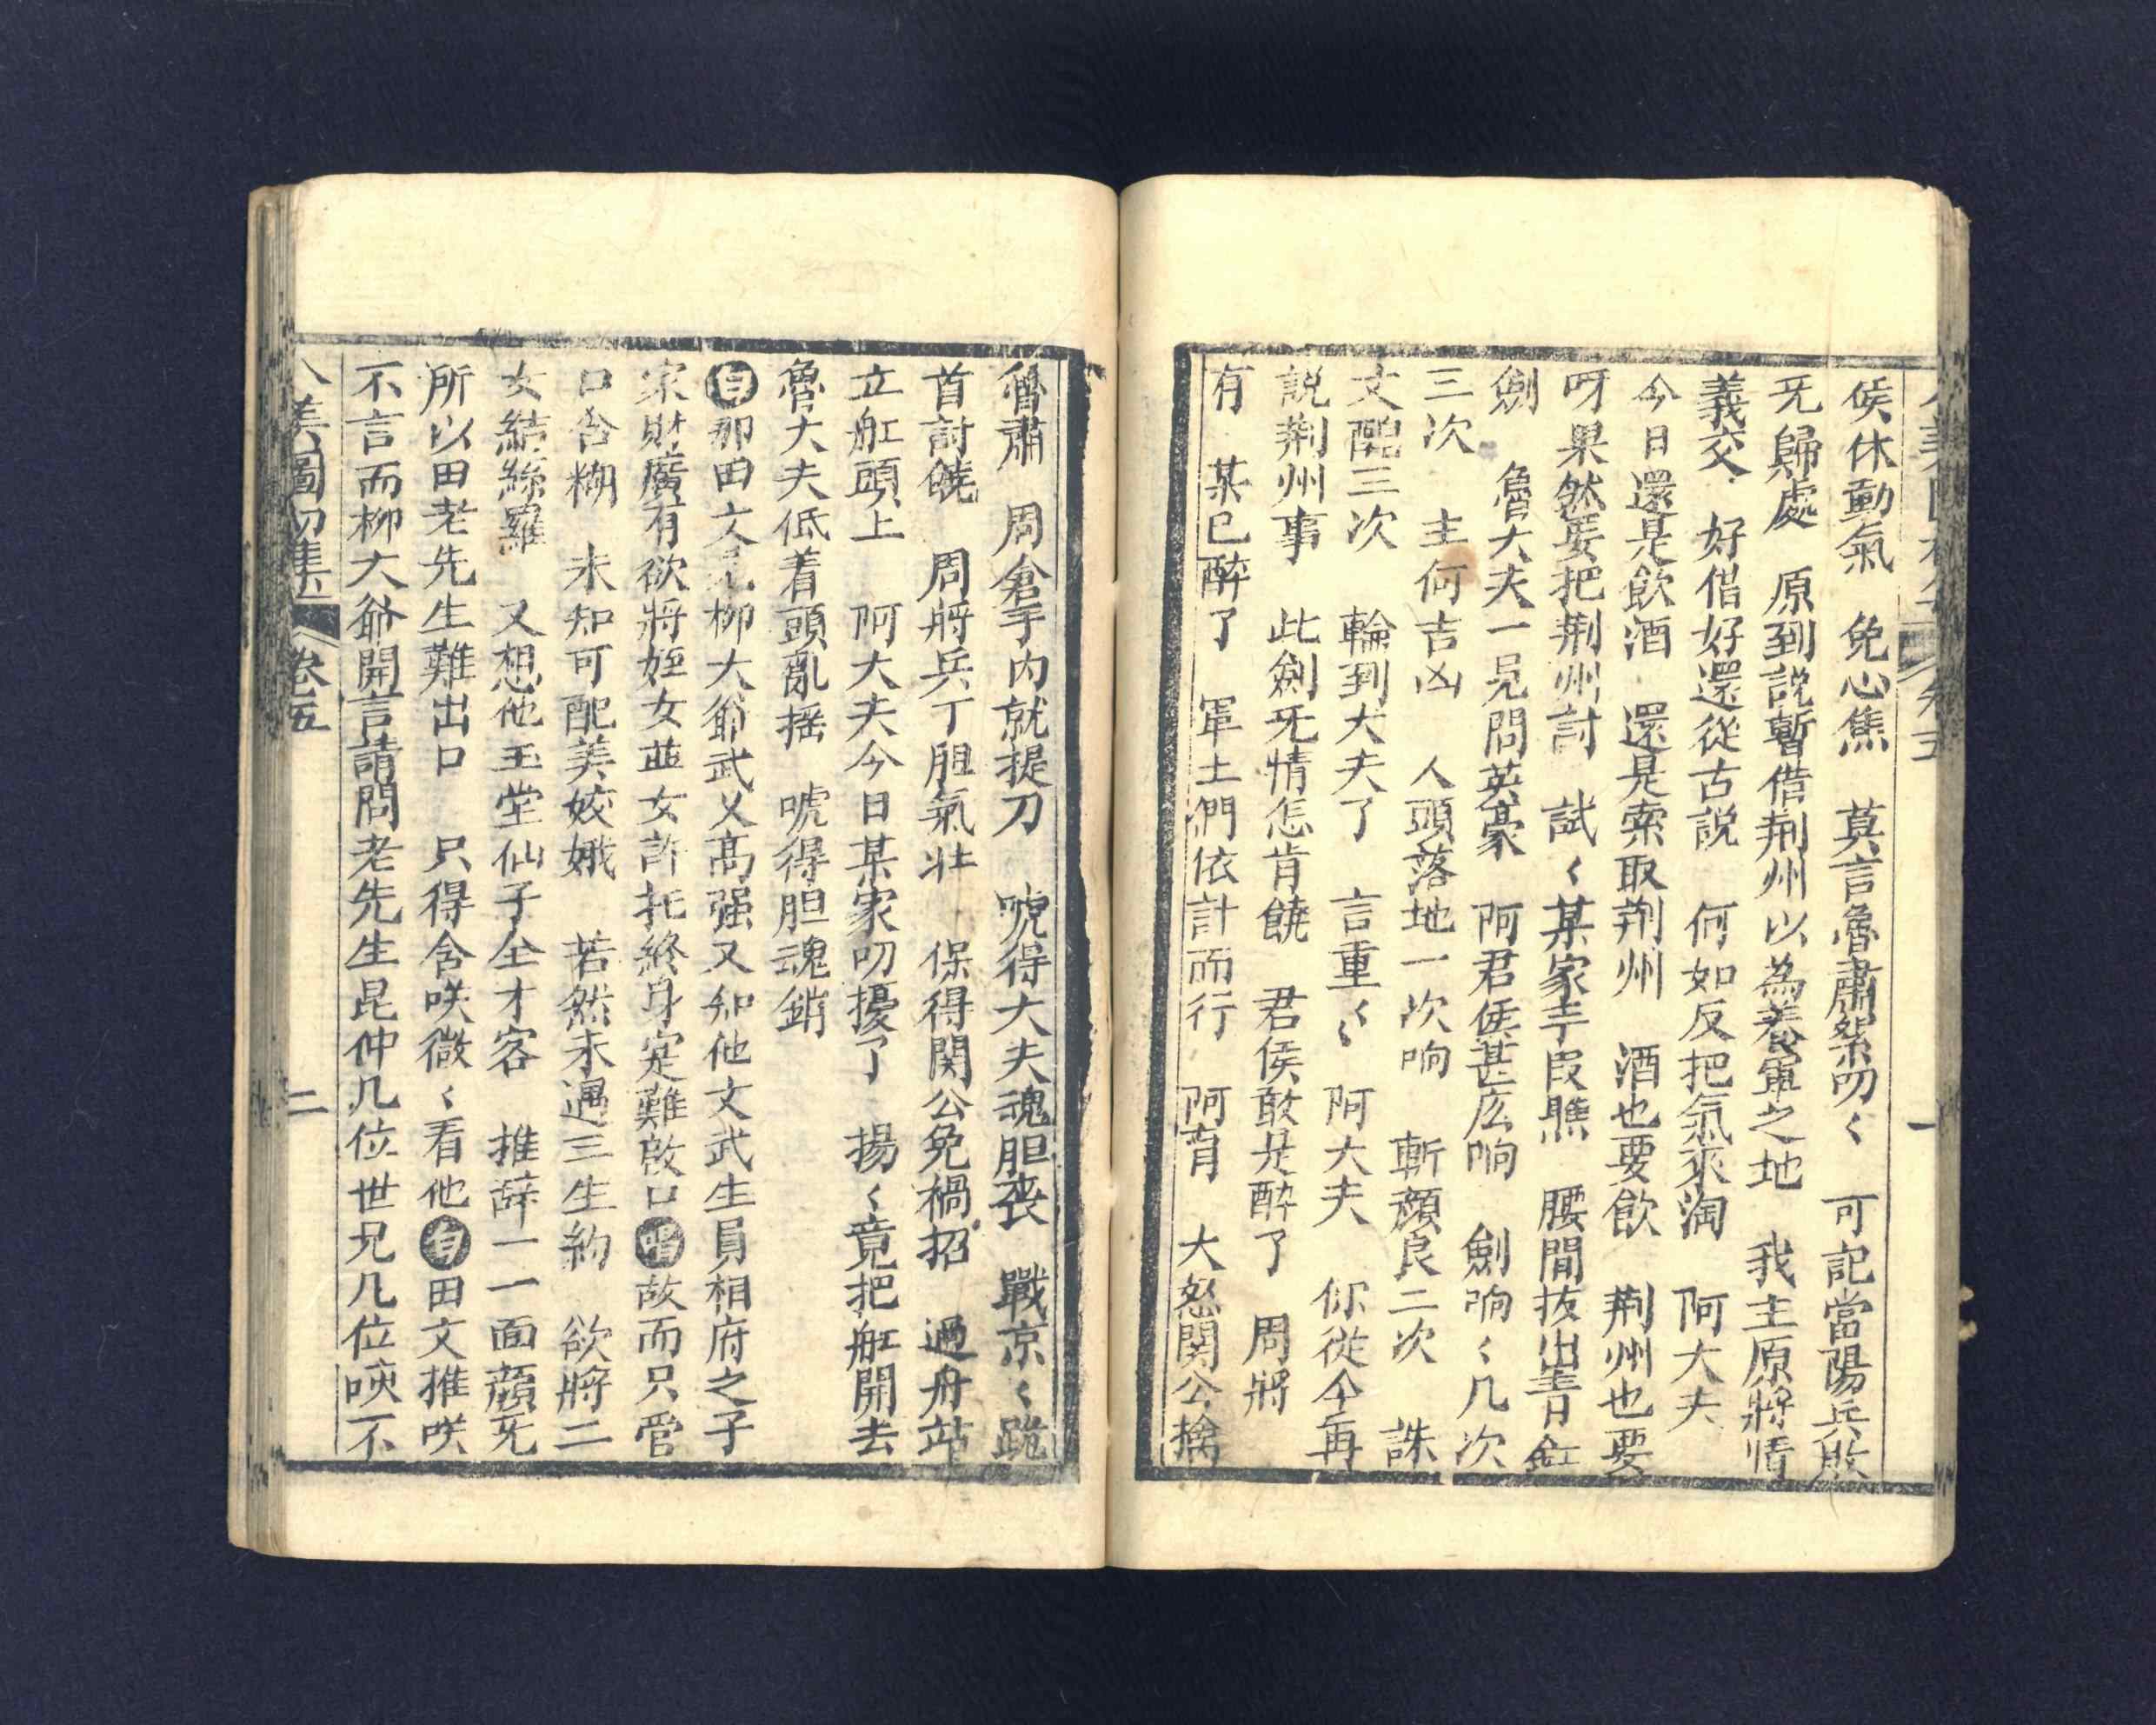 侯休動氣　免心焦　莫言魯肅絮叨〻　可記當陽兵敗
旡歸處　原到説暫借荆州以為養軍之地　我主原將情
義交　好借好還從古説　何如反把氣來淘　阿大夫
今日還是飲酒　還是索取荆州　酒也要飲　荆州也要
呀果然要把荆州討　試〻某家手段瞧　腰間抜出青釭
劍　魯大夫一見問英豪　阿君侯甚庅响　劍响〻几次
三次　主何吉凶　人頭落地一次响　斬顔良二次　誅
文醜三次　輪到大夫了　言重〻　阿大夫　你從今再
説荆州事　此劍旡情怎肯饒　君侯敢是醉了　周將
有　某已醉了　軍士們依計而行　阿育　大怒関公擒
魯肅　周倉手内就提刀　唬得大夫魂胆丧　戰京〻跪
首討饒　周將兵丁胆氣壮　保得関公免禍招　過舟站
立舡頭上　阿大夫今日某家叨擾了　揚〻竟把舡開去
魯大夫低着頭亂摇　唬得胆魂銷
白那田文見柳大爺武乂高强又知他文武生員相府之子
家財廣有欲將姪女並女許托終身寔難啟口唱故而只管
口含糊　未知可配美姣娥　若然未遇三生約　欲將二
女結絲羅　又想他玉堂仙子全才客　推辞一一面顔旡
所以田老先生難出口　只得含咲微〻看他白田文推咲
不言而柳大爺開言請問老先生昆仲几位世兄几位㖭不
八美圖初集　卷五　二